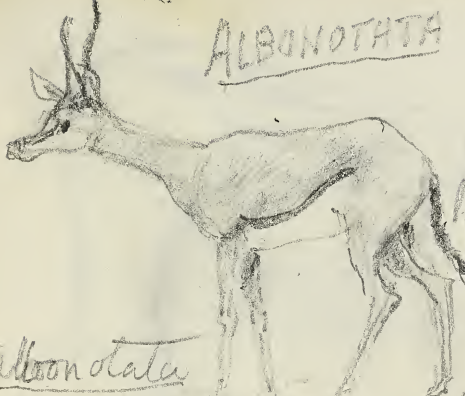 ALBONOTATA
albonotata